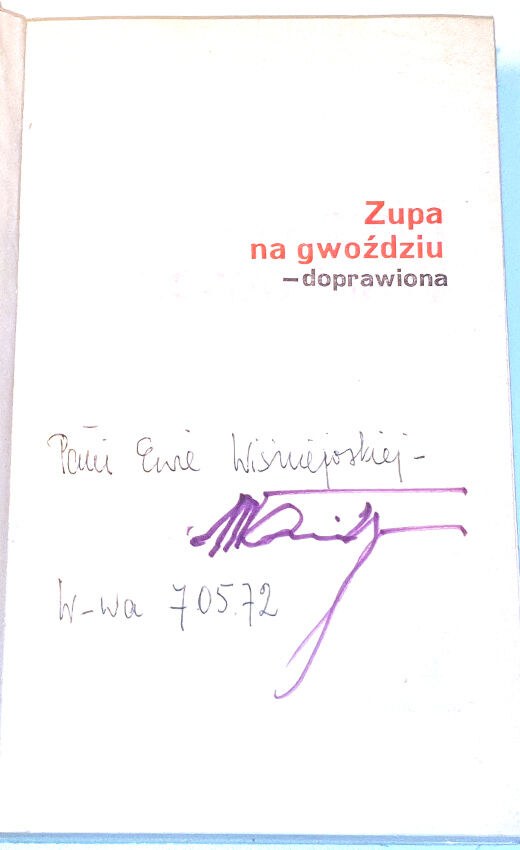 Zupa
na gwoździu
–doprawiona
Pani Ewie Wiśniejoskiej–
W-wa 7 05.72